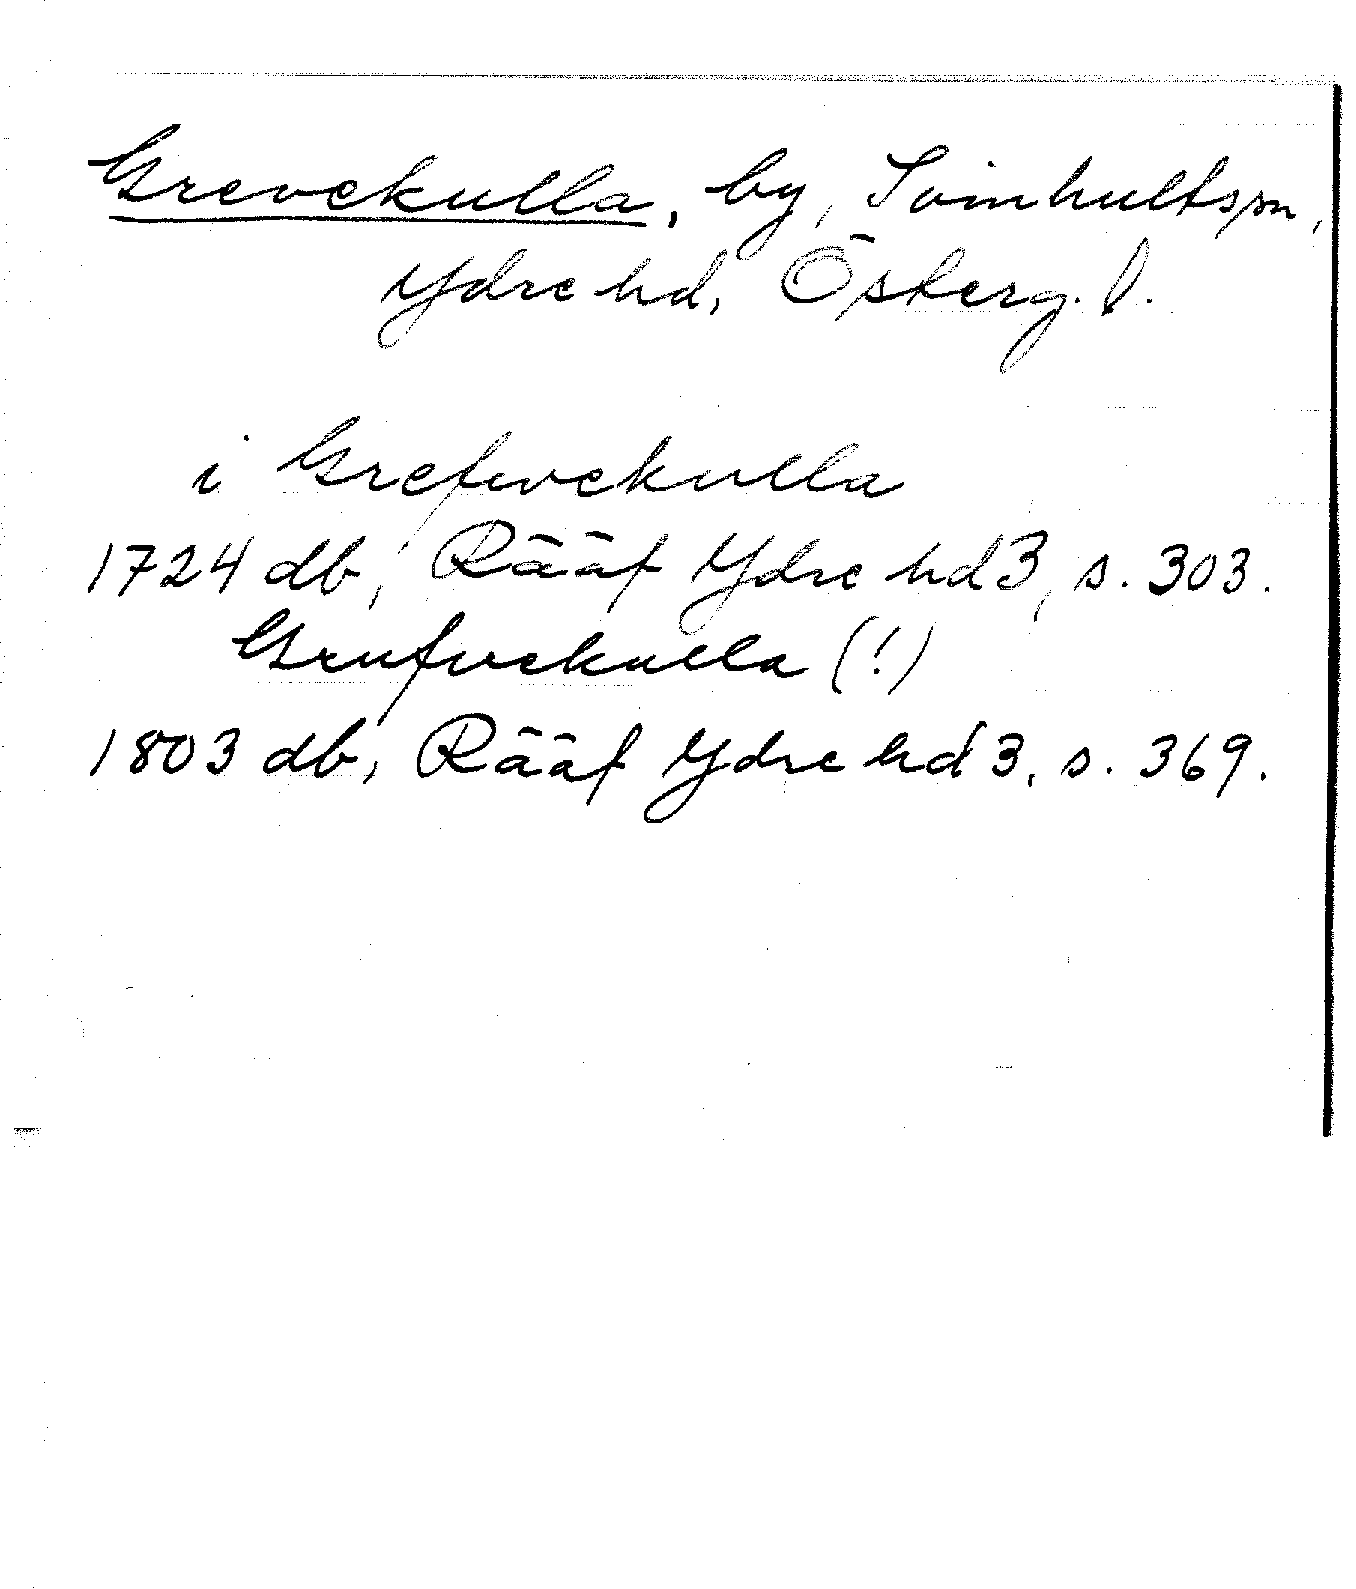 Grevekulla, by, Svinhults sn,
Ydre hd, Österg. l.
i Grefwekulla
1724 db, Rääf Ydre hd 3, s. 303.
Grufvekulla (!)
1803 db, Rääf Ydre hd 3, s. 369.